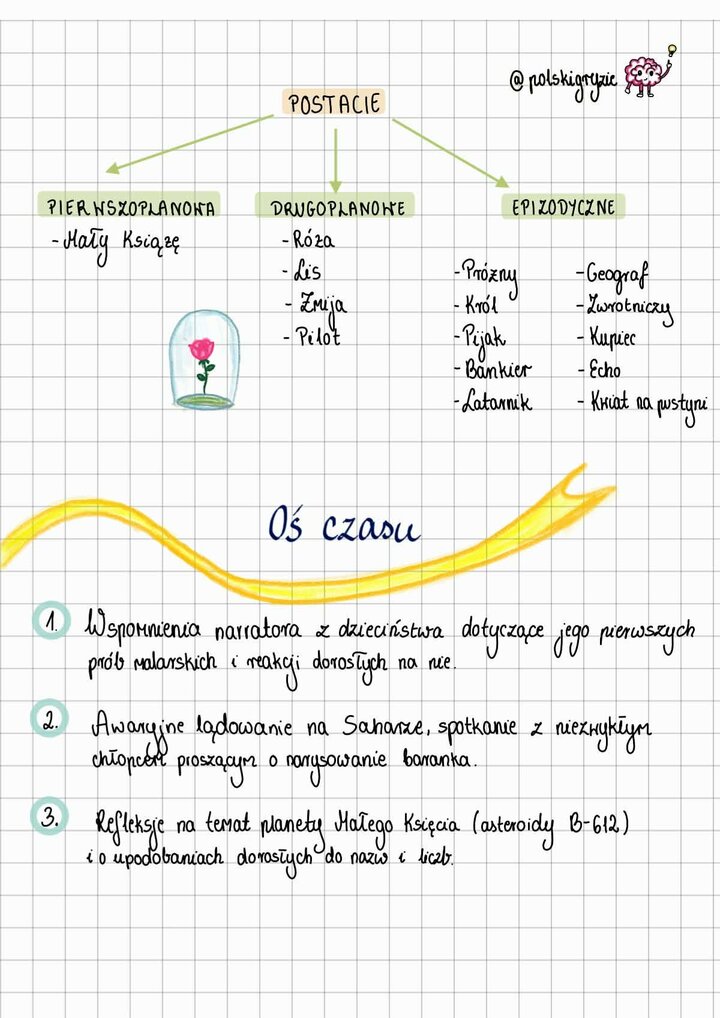 @polskigryzie
POSTACIE
PIERWSZOPLANOWA
- Mały Książę
DRUGOPLANOWE
- Róża
- Lis
- Żmija
- Pilot
EPIZODYCZNE
- Próżny
- Król
- Pijak
- Bankier
- Latarnik
- Geograf
- Zwrotniczy
- Kupiec
- Echo
- Kwiat na pustyni
Oś czasu
1. Wspomnienia narratora z dzieciństwa dotyczące jego pierwszych
prób malarskich i reakcji dorosłych na nie.
2. Awaryjne lądowanie na Saharze, spotkanie z niezwykłym
chłopcem proszącym o narysowanie baranka.
3. Refleksje na temat planety Małego Księcia (asteroidy B-612)
i o upodobaniach dorosłych do nazw i liczb.